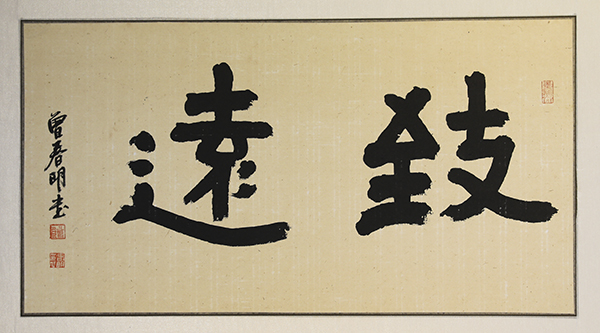 致遠
曾春明书